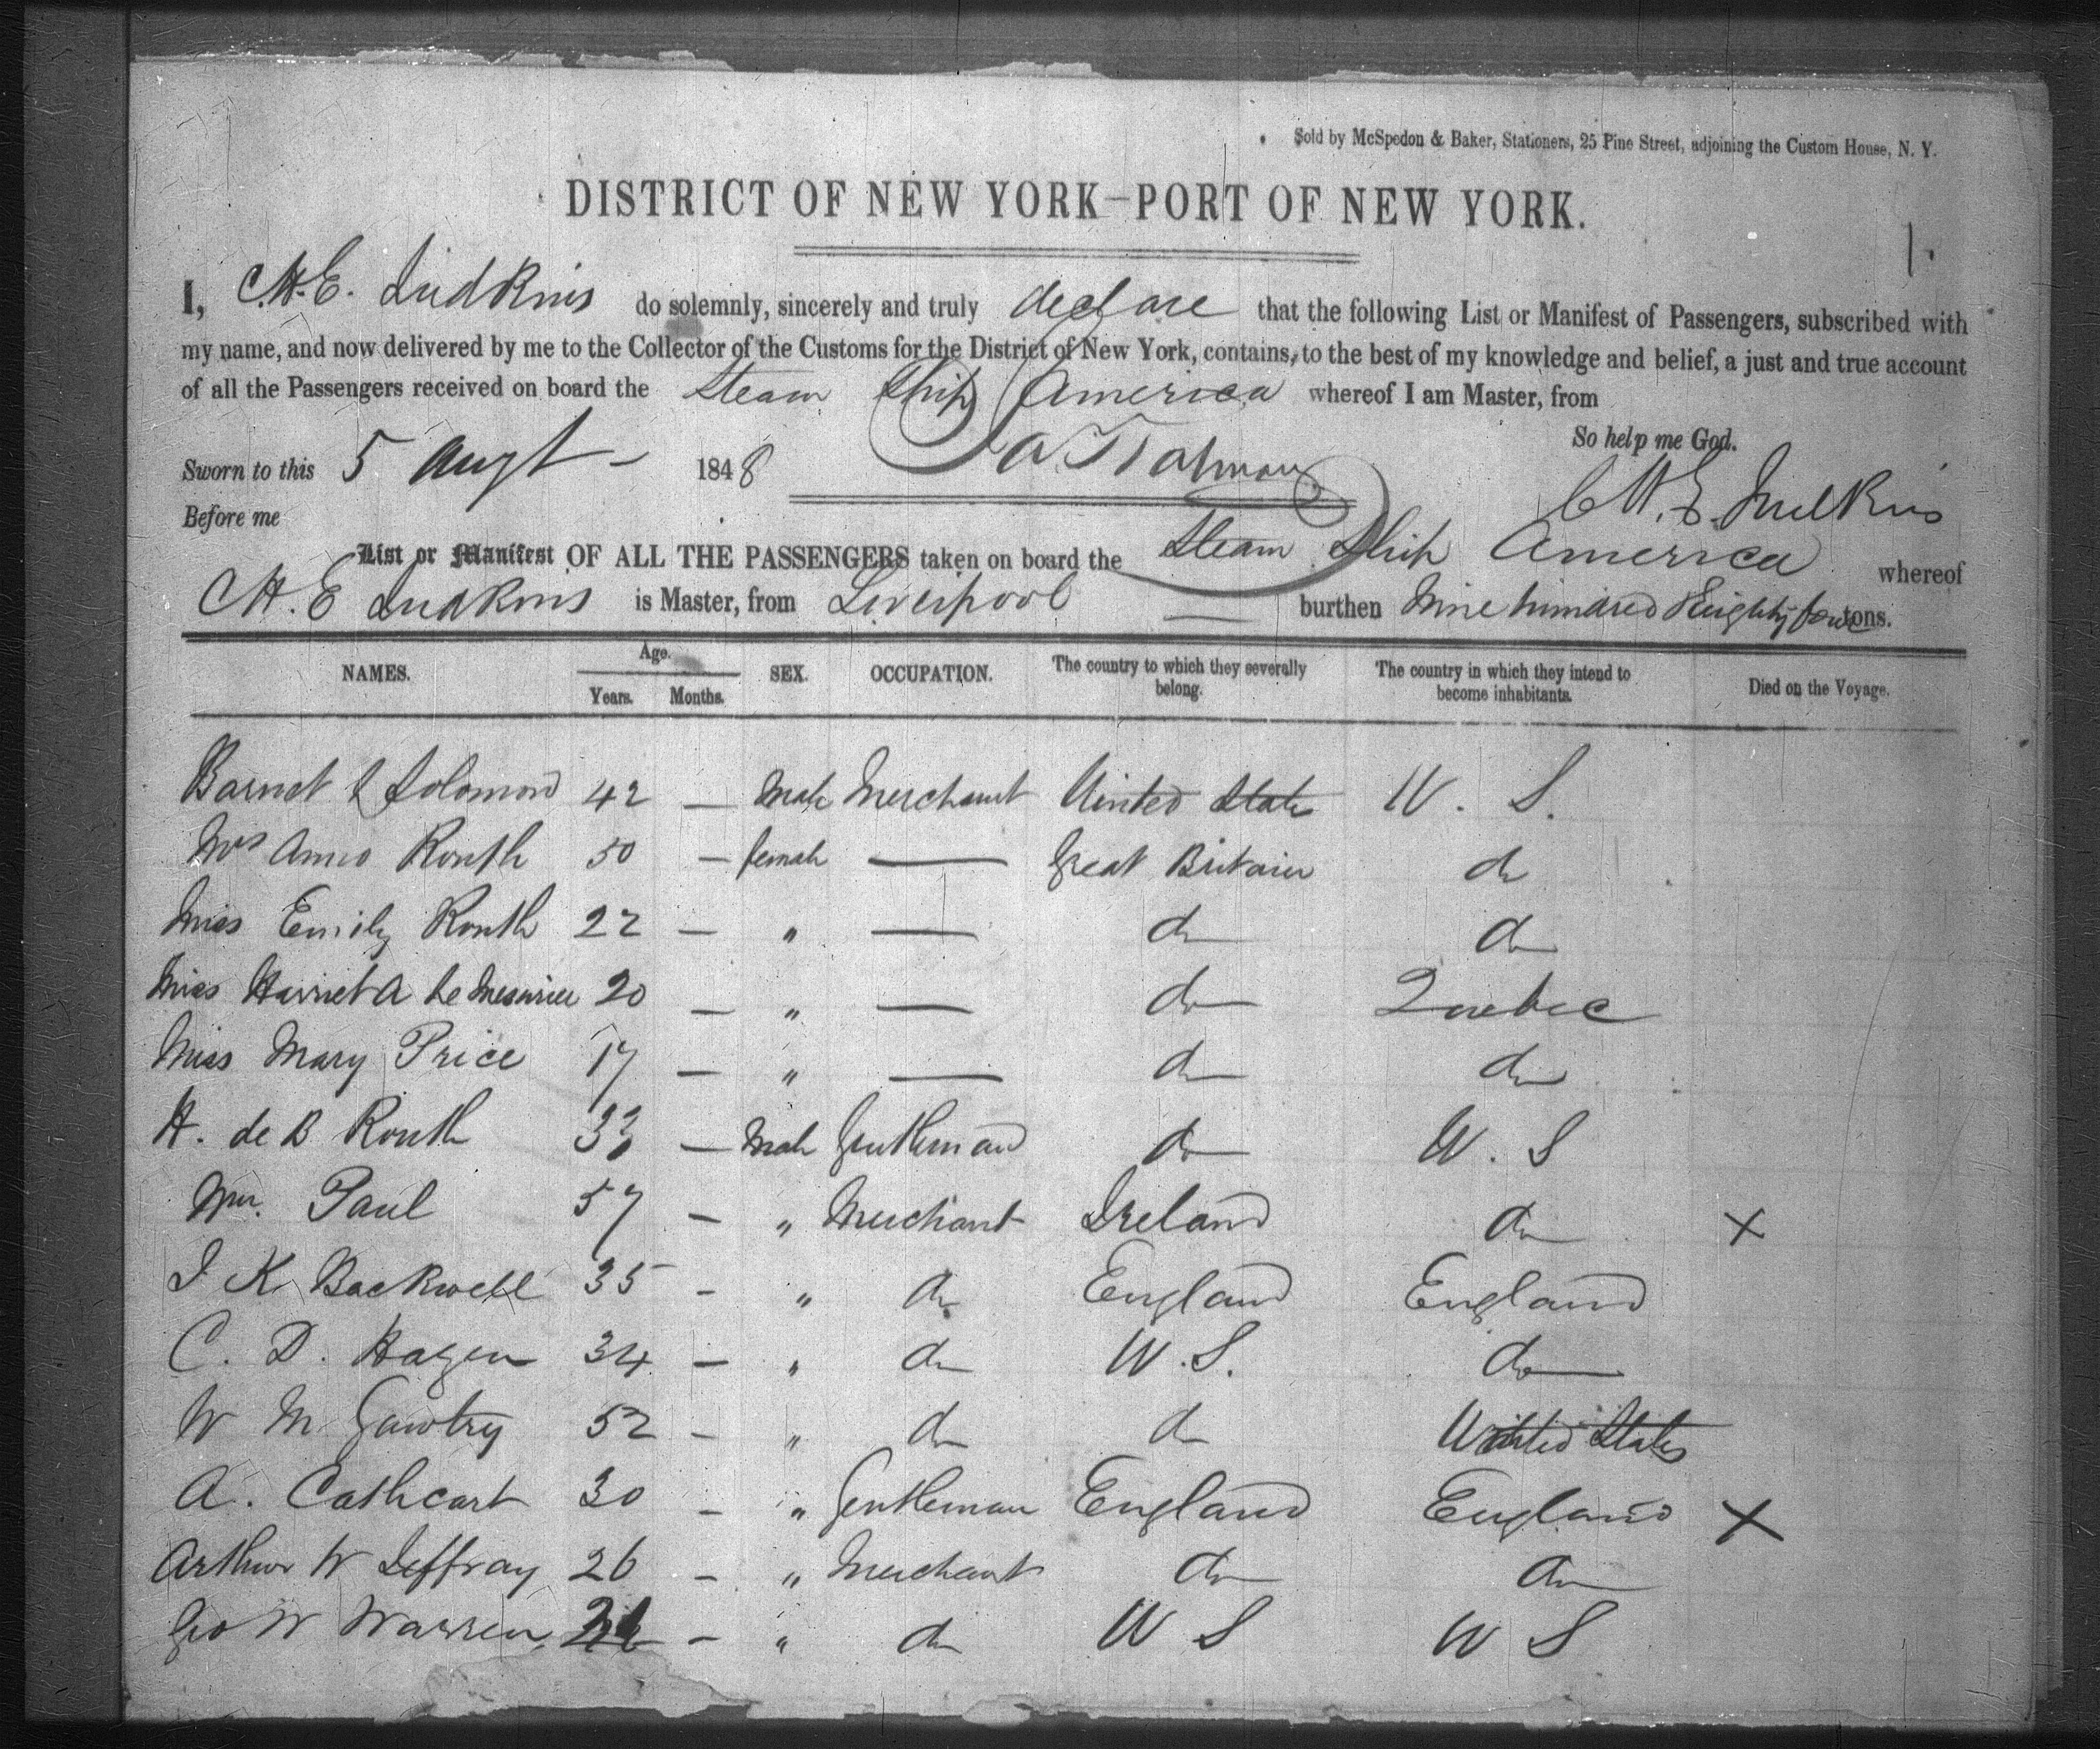 Sold by McSpedon & Baker, Stationers, 25 Pine Street, adjoining the Custom House, N. Y.
DISTRICT OF NEW YORK—PORT OF NEW YORK.
1.
I, C.H.E. Judkins do solemnly, sincerely and truly declare that the following List or Manifest of Passengers, subscribed with
my name, and now delivered by me to the Collector of the Customs for the District of New York, contains, to the best of my knowledge and belief, a just and true account
of all the Passengers received on board the Steam Ship America whereof I am Master, from
So help me God.
Sworn to this 5 Augt 1848
C H. E. Judkins
Before me
List or Manifest OF ALL THE PASSENGERS taken on board the Steam Ship America whereof
C H. E Judkins is Master, from Liverpool — burthen Nine hundred & Eighty four tons.
NAMES. Age. Years. Months. SEX. OCCUPATION. The country to which they severally belong. The country in which they intend to become inhabitants. Died on the Voyage.
Barnet L Solomon 42 — Male Merchant United States U. S.
Mrs Anne Routh 50 — female — Great Britain do
Miss Emily Routh 22 — " — do do
Miss Harriet A Le Mesurier 20 — " — do Quebec
Miss Mary Price 17 — " — do do
H. de B Routh 33 — Male Gentleman do U. S
Wm. Paul 57 — " Merchant Ireland do X
J K Backwell 35 - " do England England
C. D. Hazen 34 — " do U. S. do
W M Gawtry 52 - " do do United States
A. Cathcart 30 - " Gentleman England England X
Arthur W Jeffray 26 - " Merchant do do
Geo W Warren - " do U S U S